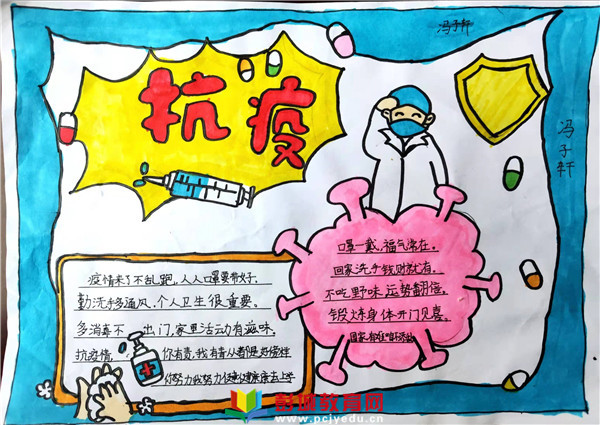 冯子轩
冯子轩
抗疫
疫情来了不乱跑,人人口罩要带好。
勤洗手多通风,个人卫生很重要。
多消毒不出门,家里活动有滋味。
抗疫情,你有责,我有责
你努力我努力
去上学
口罩一戴,福气常在。
回家洗手钱财就有。
不吃野味运势翻倍。
锻炼身体开门见喜。
国家
彭城教育网
www.pcjyedu.cn